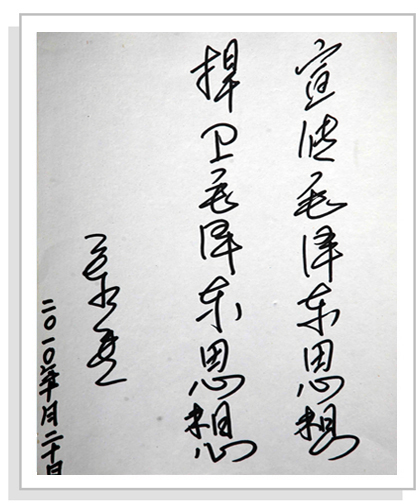 宣传毛泽东思想
捍卫毛泽东思想
二〇一〇年月二十日